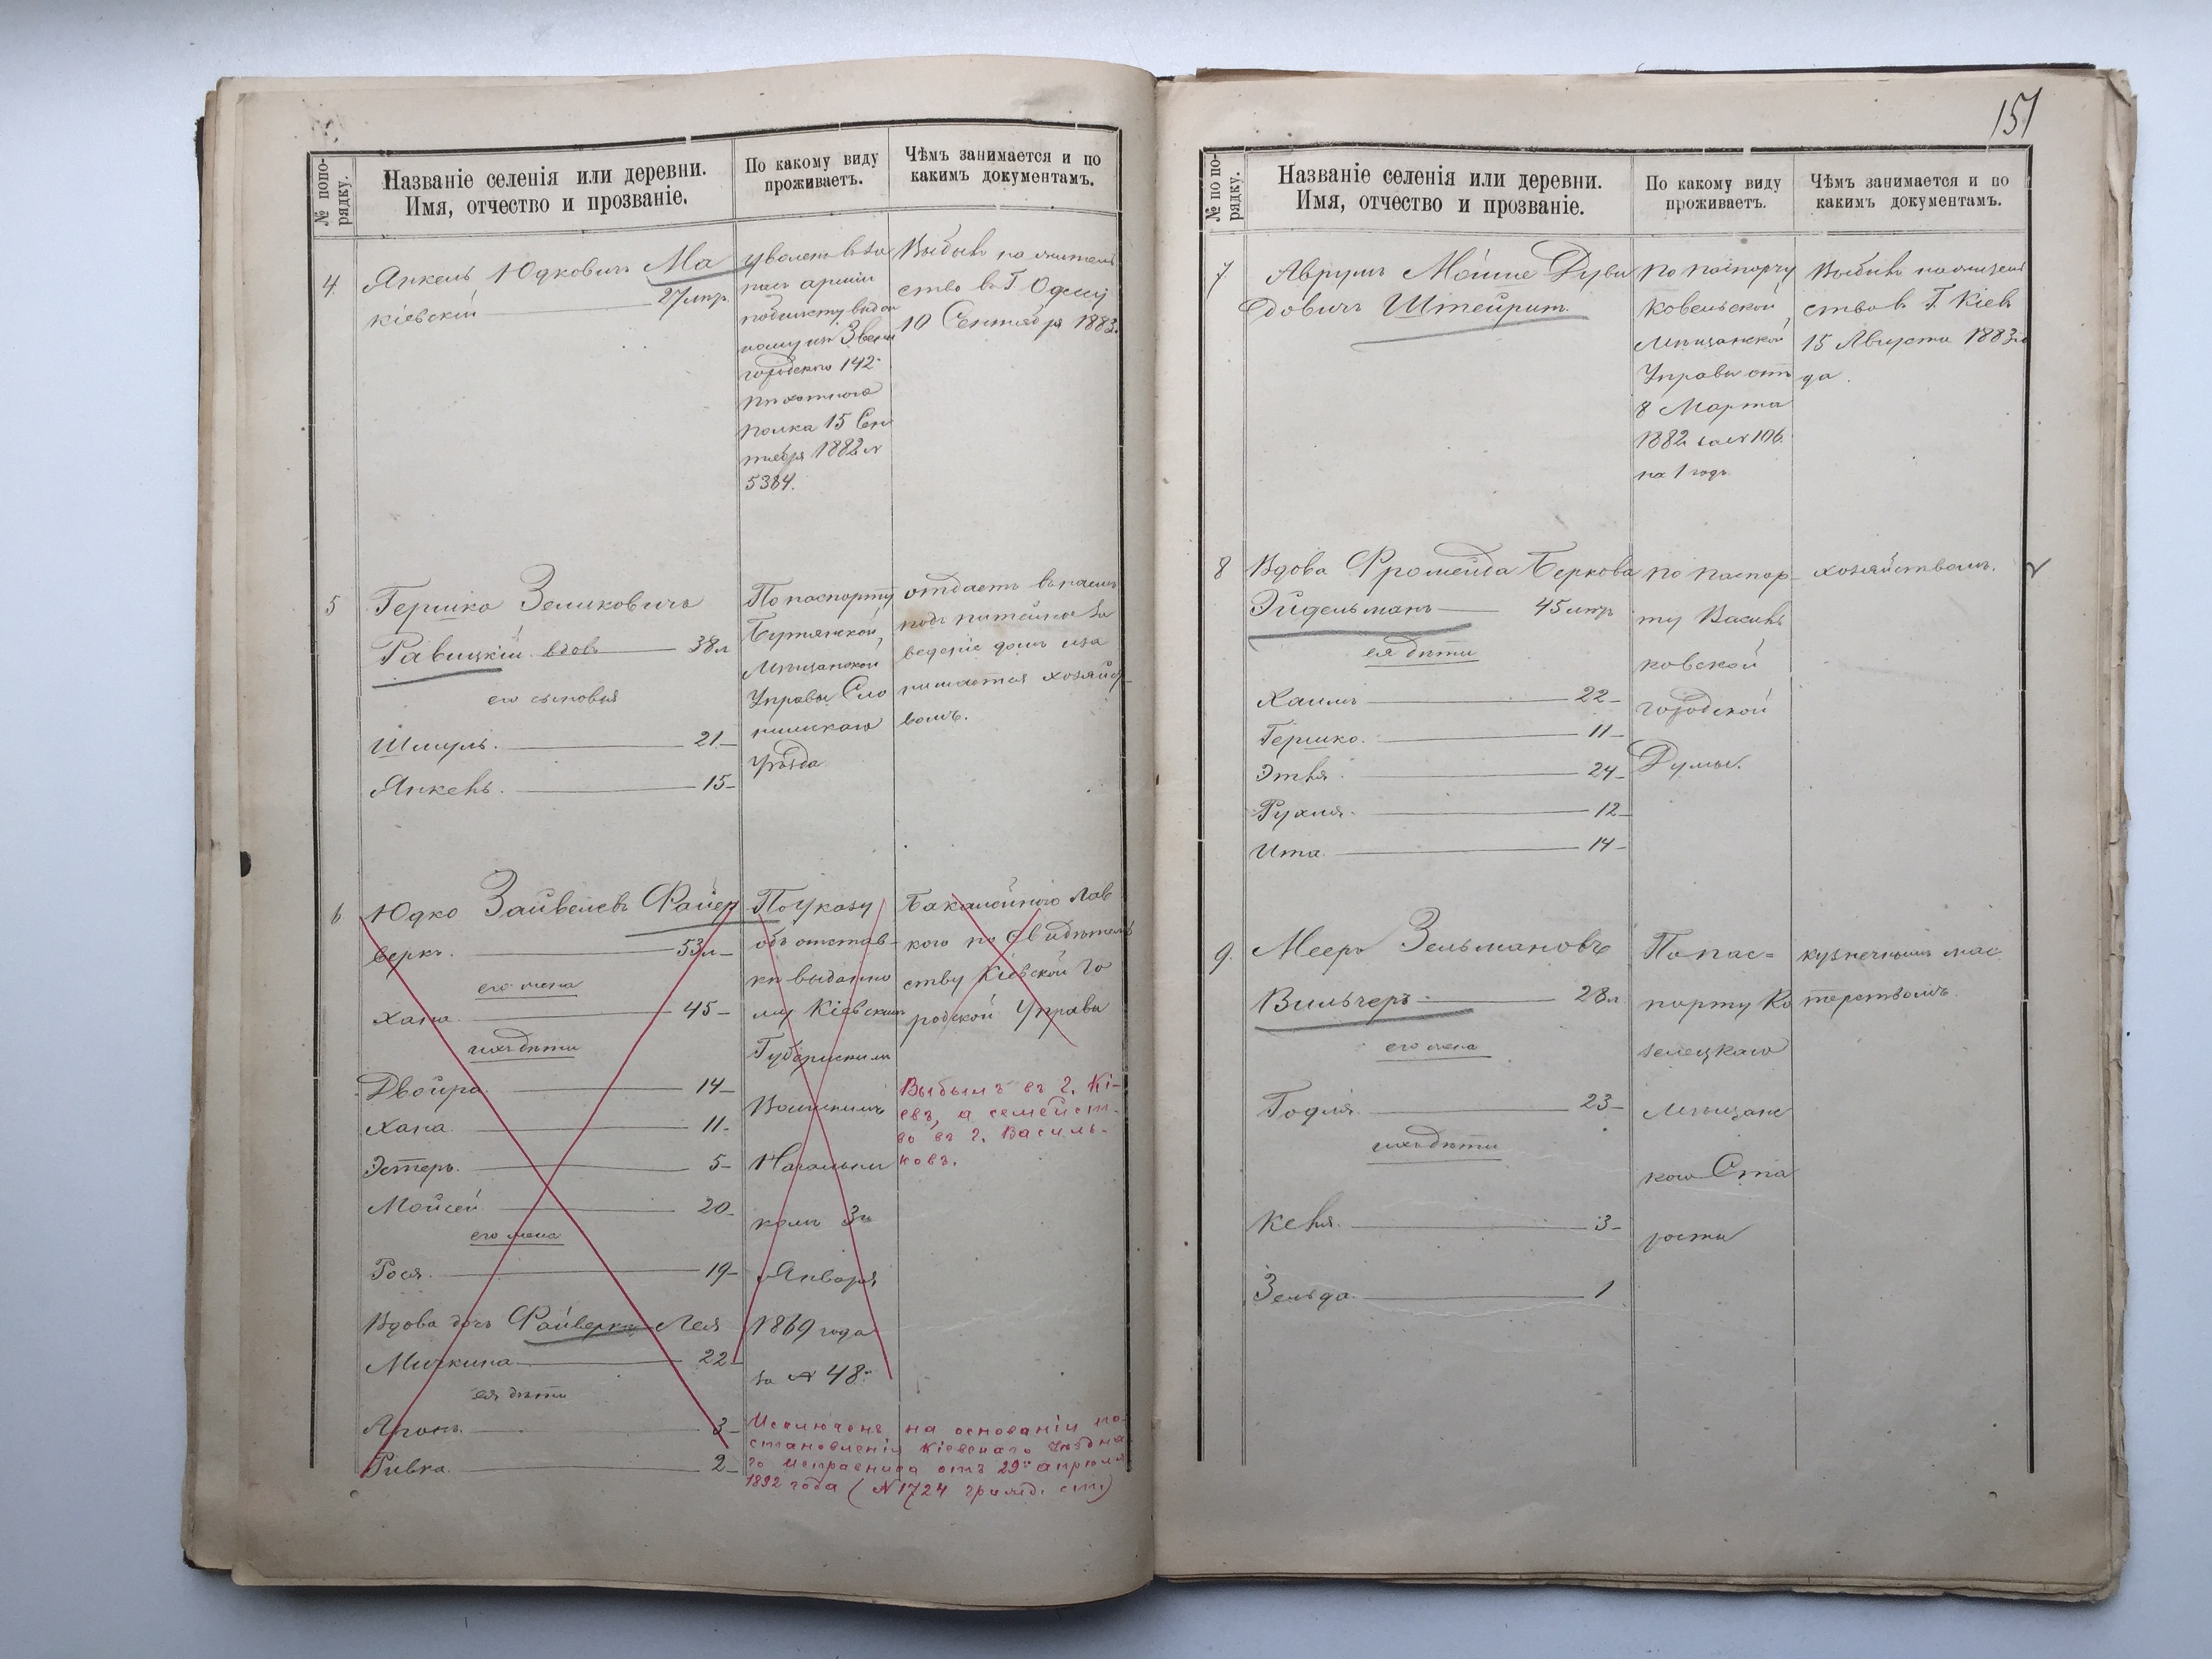 № по по-
рядку.
Названіе селенія или деревни.
Имя, отчество и прозваніе.
По какому виду
проживаетъ.
Чѣмъ занимается и по
какимъ документамъ.
4. Янкель Юдковичъ Ма
кіевскій 27 лѣтъ
уволенъ въ за
пасъ арміи
по билету выдан
ному изъ Звени
городскаго 142
пѣхотнаго
полка 15 Сен
тября 1882 №
5384.
Выбылъ на житель
ство въ Г Одессу
10 Сентября 1883.
5 Гершко Зелиховичъ
Равицкій вдов 38 л
его сыновья
Шмуль. 21-
Янкель. 15-
По паспорту
Мѣщанской
Управы Сло
нимскаго
уѣзда
отдаетъ въ наемъ
подъ питейное за
веденіе домъ и за
нимается хозяйст
вомъ.
6 Юдко Зайвелевъ Файер
веркъ. 53 л-
его жена
Хана 45-
ихъ дѣти
Двойра. 14-
Хана. 11-
Эстеръ. 5-
Мойсей 20-
его жена
Рося. 19-
Вдова дочь Файверка Лея
Мичкина 22-
ея дѣти
Аронъ. 3-
Ривка. 2-
По указу
объ отстав-
кѣ выданно
му Кіевскимъ
Губернскимъ
Воинскимъ
Начальни
комъ 3го
Января
1869 года
за № 48.
Бакалейного лав
кого по свидѣтель
ству Кіевской Го
родской Управы
Выбылъ въ г. Кі-
евъ, а семейст-
во въ г. Василь-
ковъ.
Исключенъ на основаніи по-
становленія Кіевскаго Уѣздна
го Исправника отъ 29го апрѣля
1892 года ( № 1724 гражд. ст.)
151
№ по по-
рядку.
Названіе селенія или деревни.
Имя, отчество и прозваніе.
По какому виду
проживаетъ.
Чѣмъ занимается и по
какимъ документамъ.
7. Аврумъ Мошье Дуви
довичъ Штейритъ.
По паспорту
Ковельской
Мѣщанской
Управы отъ
8 Марта
1882 за № 106
на 1 годъ.
Выбылъ на жител
ство в Г. Кіев
15 Августа 1883 го
да.
8 Вдова Фромейда Беркова
Эйдельманъ 45 лѣтъ
ея дѣти
Хаимъ 22-
Гершко. 11-
Этля. 24-
Рухля. 12-
Ита. 14-
По паспор-
ту Василь
ковской
городской
Думы.
хозяйствомъ.
9. Мееръ Зельмановъ
Вильчеръ. 28 л
его жена
Годля. 23-
ихъ дѣти
Кеня. 3-
Зельда. 1
По пас=
порту Ко
зелецкаго
Мѣщанс
кого Ста
росты
кузнечнымъ мас
терствомъ.